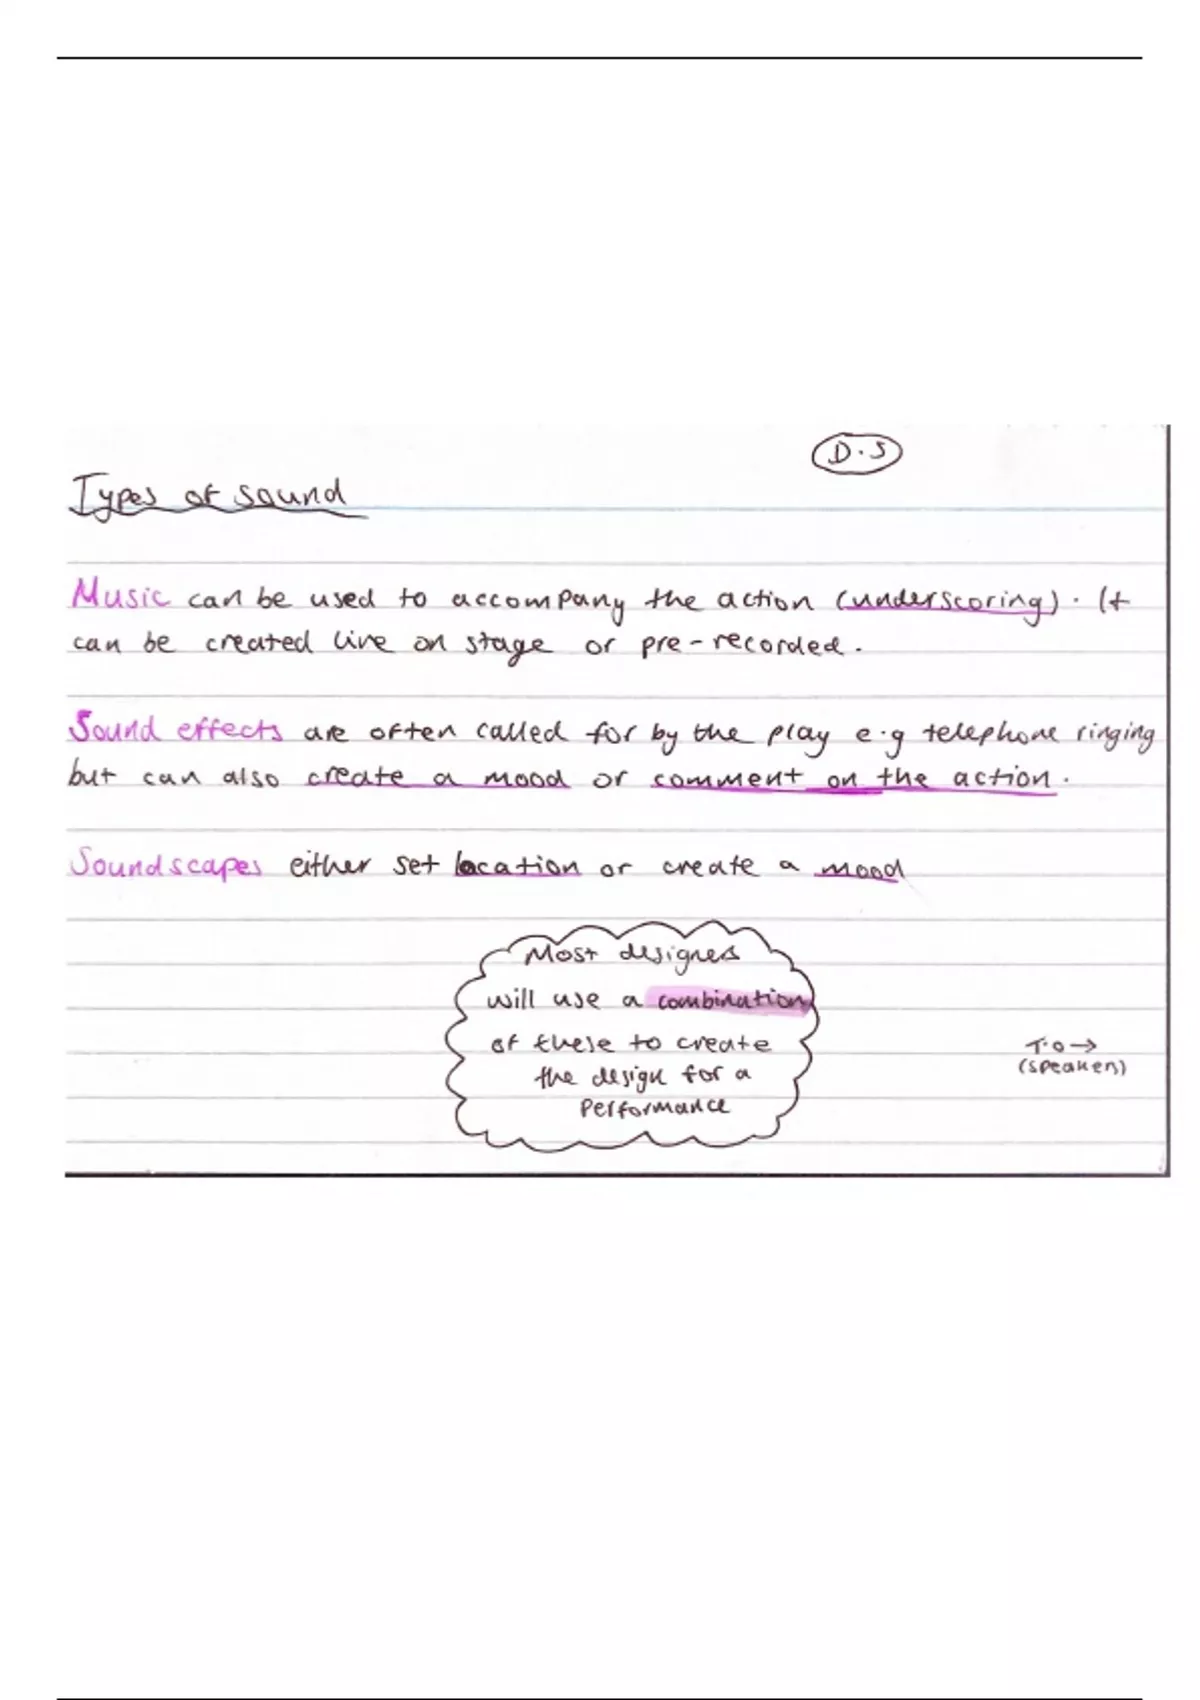 D.S
Types of sound
Music can be used to accompany the action (underscoring). It
can be created live on stage or pre-recorded.
Sound effects are often called for by the play e.g telephone ringing
but can also create a mood or comment on the action.
Soundscapes either set location or create a mood
Most designers
will use a combination
of these to create
the design for a
performance
T.O→
(speakers)